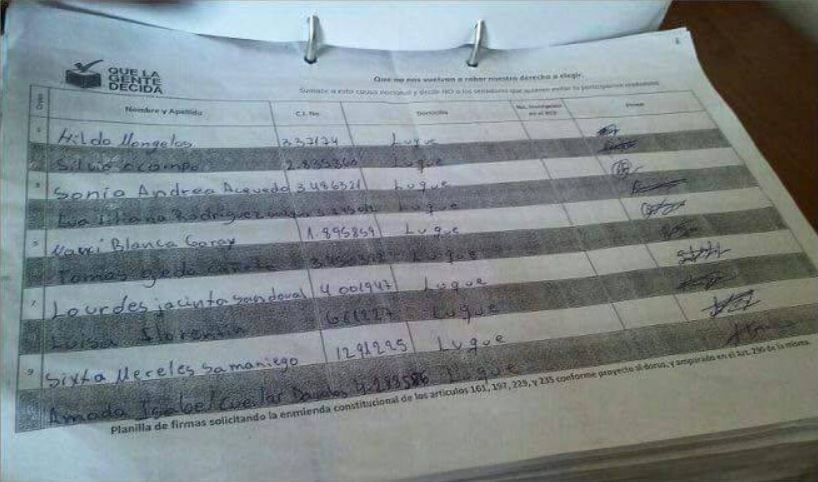 QUE LA
GENTE
DECIDA
Que no nos vuelvan a robar nuestro derecho a elegir.
Sumate a esta causa nacional y decile NO a los senadores que quieren evitar tu participación ciudadana
Orden Nombre y Apellido C.I. No. Domicilio No. Inscripción en el RCP Firma
Hilda Mongelos 337174 Luque
Silvio Ocampo 2.835360 Luque
3 Sonia Andrea Acevedo 3486321 Luque
Liliana Rodriguez Luque
5 Blanca Garay 1.895859 Luque
Tomas Ojeda Luque
7 Lourdes jacinta Sandoval 4001947 Luque
Luisa Florentin 611227 Luque
9 Sixta Mereles Samaniego 1291225 Luque
Amada Isabel Cuellar 4.283586 Luque
Planilla de firmas solicitando la enmienda constitucional de los artículos 161, 197, 229, y 235 conforme proyecto al dorso, y amparado en el Art. 290 de la misma.